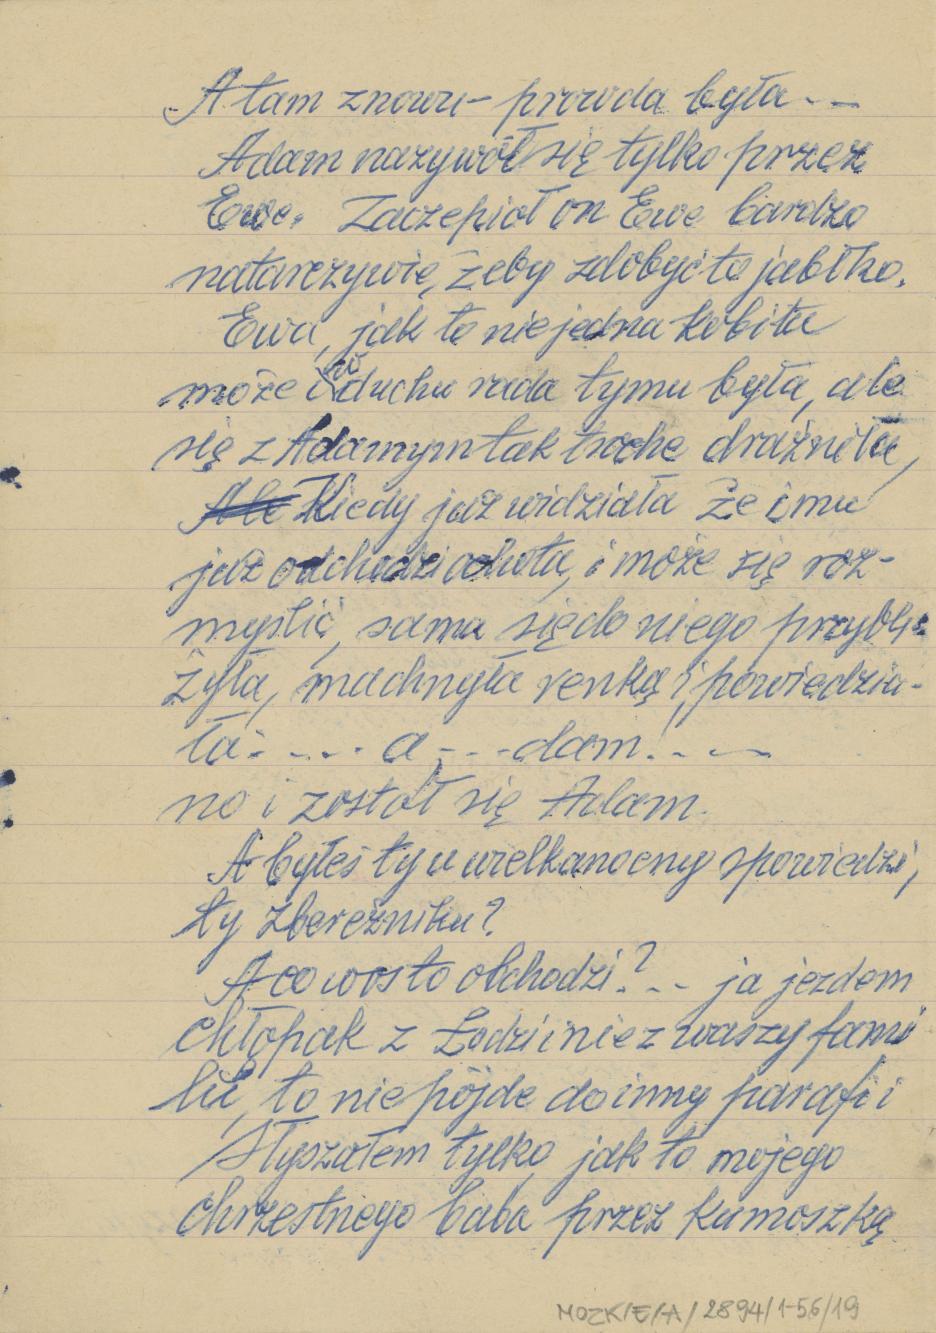 A tam znowu – prowda była - —
Adam nazywoł się tylko przez
Ewe. Zaczepioł on Ewe bardzo
natarczywie, żeby zdobyć to jabłko.
Ewa, jak to niejedna kobita
może w duchu rada tymu była, ale
się z Adamym tak troche drażniła,
Ale Kiedy już widziała że i mu
już odchodzi ochota, i może się roz-
myślić, sama się do niego przybli-
żyła, machnyła renką i powiedzia-
ła - - - . a - - - dam! - - —
no i zostoł się Adam.
A byłeś ty u wielkanocny spowiedzi,
ty zbereźniku?
A co wos to obchodzi? . - - ja jezdem
chłopak z Łodzi i nie z waszy fami
lii, to nie pójde do inny parafii
Słyszałem tylko, jak to mojego
chrzestnego baba przez kumoszką
MOZK/E/A/2894/1-56/19